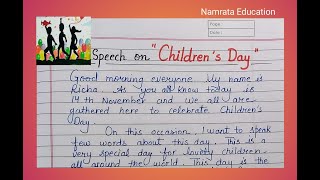 Namrata Education
Page :
Date :
Speech on "Children's Day"
Good morning everyone My name is
Richa. As you all know today is
14th November and we all are
gathered here to celebrate Children's
Day.
On this occasion, I want to speak
few words about this day. This is a
very special day for lovely children
all around the world. This day is the